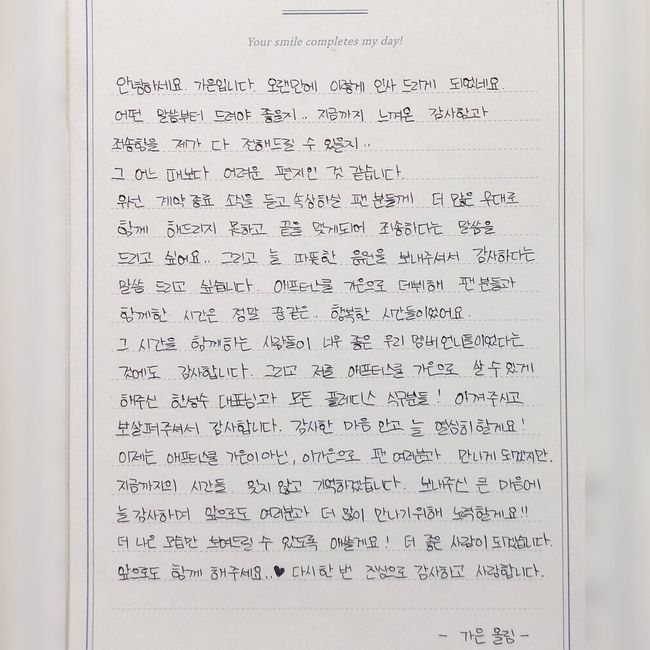 Your smile completes my day!
안녕하세요. 가은입니다. 오랜만에 이렇게 인사 드리게 되었네요
어떤 말씀부터 드려야 좋을지.. 지금까지 느껴온 감사함과
죄송함을 제가 다 전해드릴 수 있을지..
그 어느 때보다 어려운 편지인 것 같습니다.
우선 계약 종료 소식을 듣고 속상하실 팬 분들께 더 많은 무대로
함께 해드리지 못하고 끝을 맺게되어 죄송하다는 말씀을
드리고 싶어요.. 그리고 늘 따뜻한 응원을 보내주셔서 감사하다는
말씀 드리고 싶습니다. 애프터스쿨 가은으로 데뷔해 팬 분들과
함께한 시간은 정말 꿈같은.. 행복한 시간들이었어요.
그 시간을 함께하는 사람들이 너무 좋은 우리 멤버언니들이었다는
것에도 감사합니다. 그리고 저를 애프터스쿨 가은으로 살 수 있게
해주신 한성수 대표님과 모든 플레디스 식구분들! 아껴주시고
보살펴주셔서 감사합니다. 감사한 마음 안고 늘 열심히 할게요!
이제는 애프터스쿨 가은이 아닌, 이가은으로 팬 여러분과 만나게 되겠지만,
지금까지의 시간들 잊지 않고 기억하겠습니다. 보내주신 큰 마음에
늘 감사하며 앞으로도 여러분과 더 많이 만나기 위해 노력할게요!!
더 나은 모습만 보여드릴 수 있도록 애쓸게요! 더 좋은 사람이 되겠습니다.
앞으로도 함께 해주세요..♥ 다시 한 번 진심으로 감사하고 사랑합니다.
- 가은 올림 -